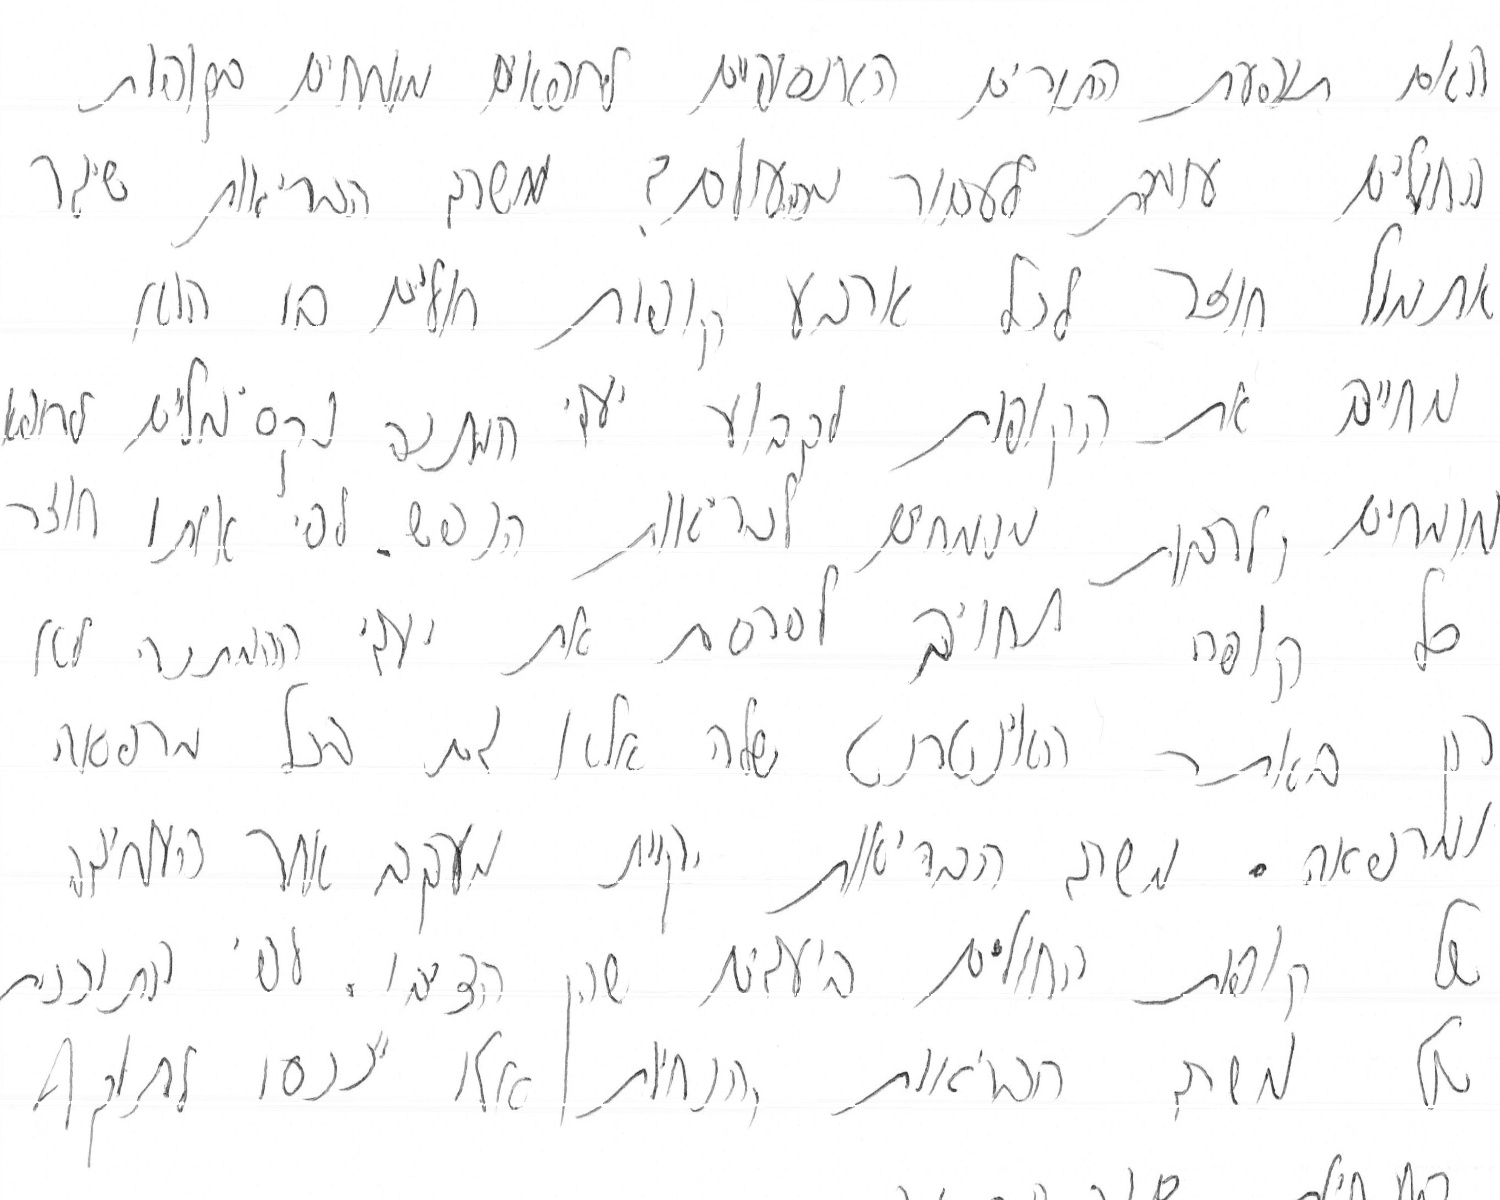 האם תופעת התורים האינסופיים לרופאים מומחים בקופות
החולים עומדת לעבור מהעולם? משרד הבריאות שיגר
אתמול חוזר לכל ארבע קופות חולים בו הוא
מחייב את הקופות לקבוע יעדי המתנה מקסימליים לרופאים
מומחים ולרבות מומחים לבריאות הנפש. לפי אותו חוזר
כל קופה תחויב לפרסם את יעדי ההמתנה לא
רק באתר האינטרנט שלה אלא גם בכל מרפאה
ומרפאה. משרד הבריאות יקיים מעקב אחר העמידה
של קופות החולים ביעדים שהן הציבו. לפי התוכנית
של משרד הבריאות ההנחיות אלו יכנסו לתוקף